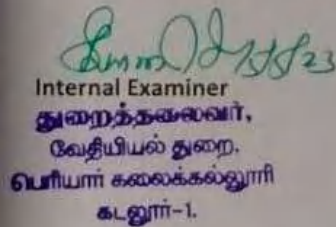 Internal Examiner
துறைத்தலைவர்,
வேதியியல் துறை.
பெரியார் கலைக்கல்லூரி
கடலூர்-1.